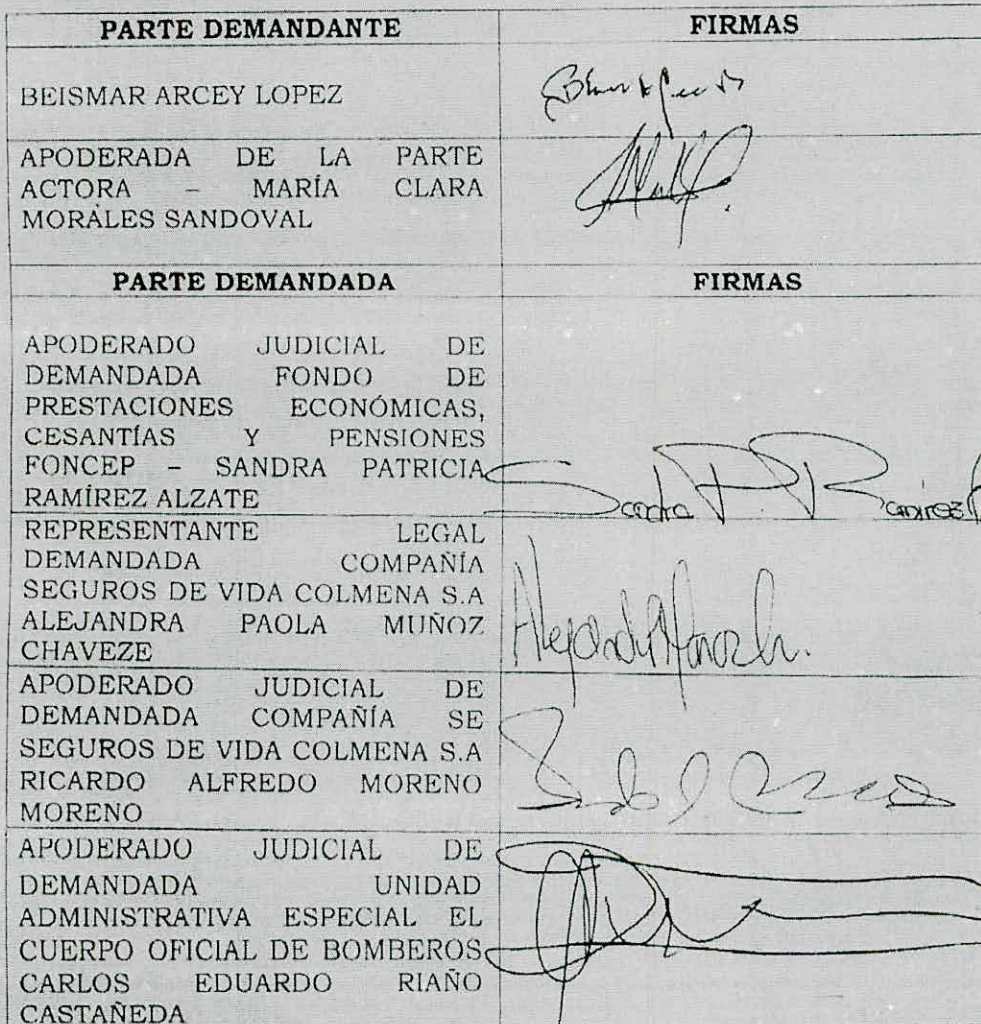 PARTE DEMANDANTE FIRMAS
BEISMAR ARCEY LOPEZ
APODERADA DE LA PARTE
ACTORA – MARÍA CLARA
MORALES SANDOVAL
PARTE DEMANDADA FIRMAS
APODERADO JUDICIAL DE
DEMANDADA FONDO DE
PRESTACIONES ECONÓMICAS,
CESANTÍAS Y PENSIONES
FONCEP – SANDRA PATRICIA
RAMÍREZ ALZATE
Sandra P. Ramirez
REPRESENTANTE LEGAL
DEMANDADA COMPAÑÍA
SEGUROS DE VIDA COLMENA S.A
ALEJANDRA PAOLA MUÑOZ
CHAVEZE
APODERADO JUDICIAL DE
DEMANDADA COMPAÑÍA SE
SEGUROS DE VIDA COLMENA S.A
RICARDO ALFREDO MORENO
MORENO
APODERADO JUDICIAL DE
DEMANDADA UNIDAD
ADMINISTRATIVA ESPECIAL EL
CUERPO OFICIAL DE BOMBEROS
CARLOS EDUARDO RIAÑO
CASTAÑEDA